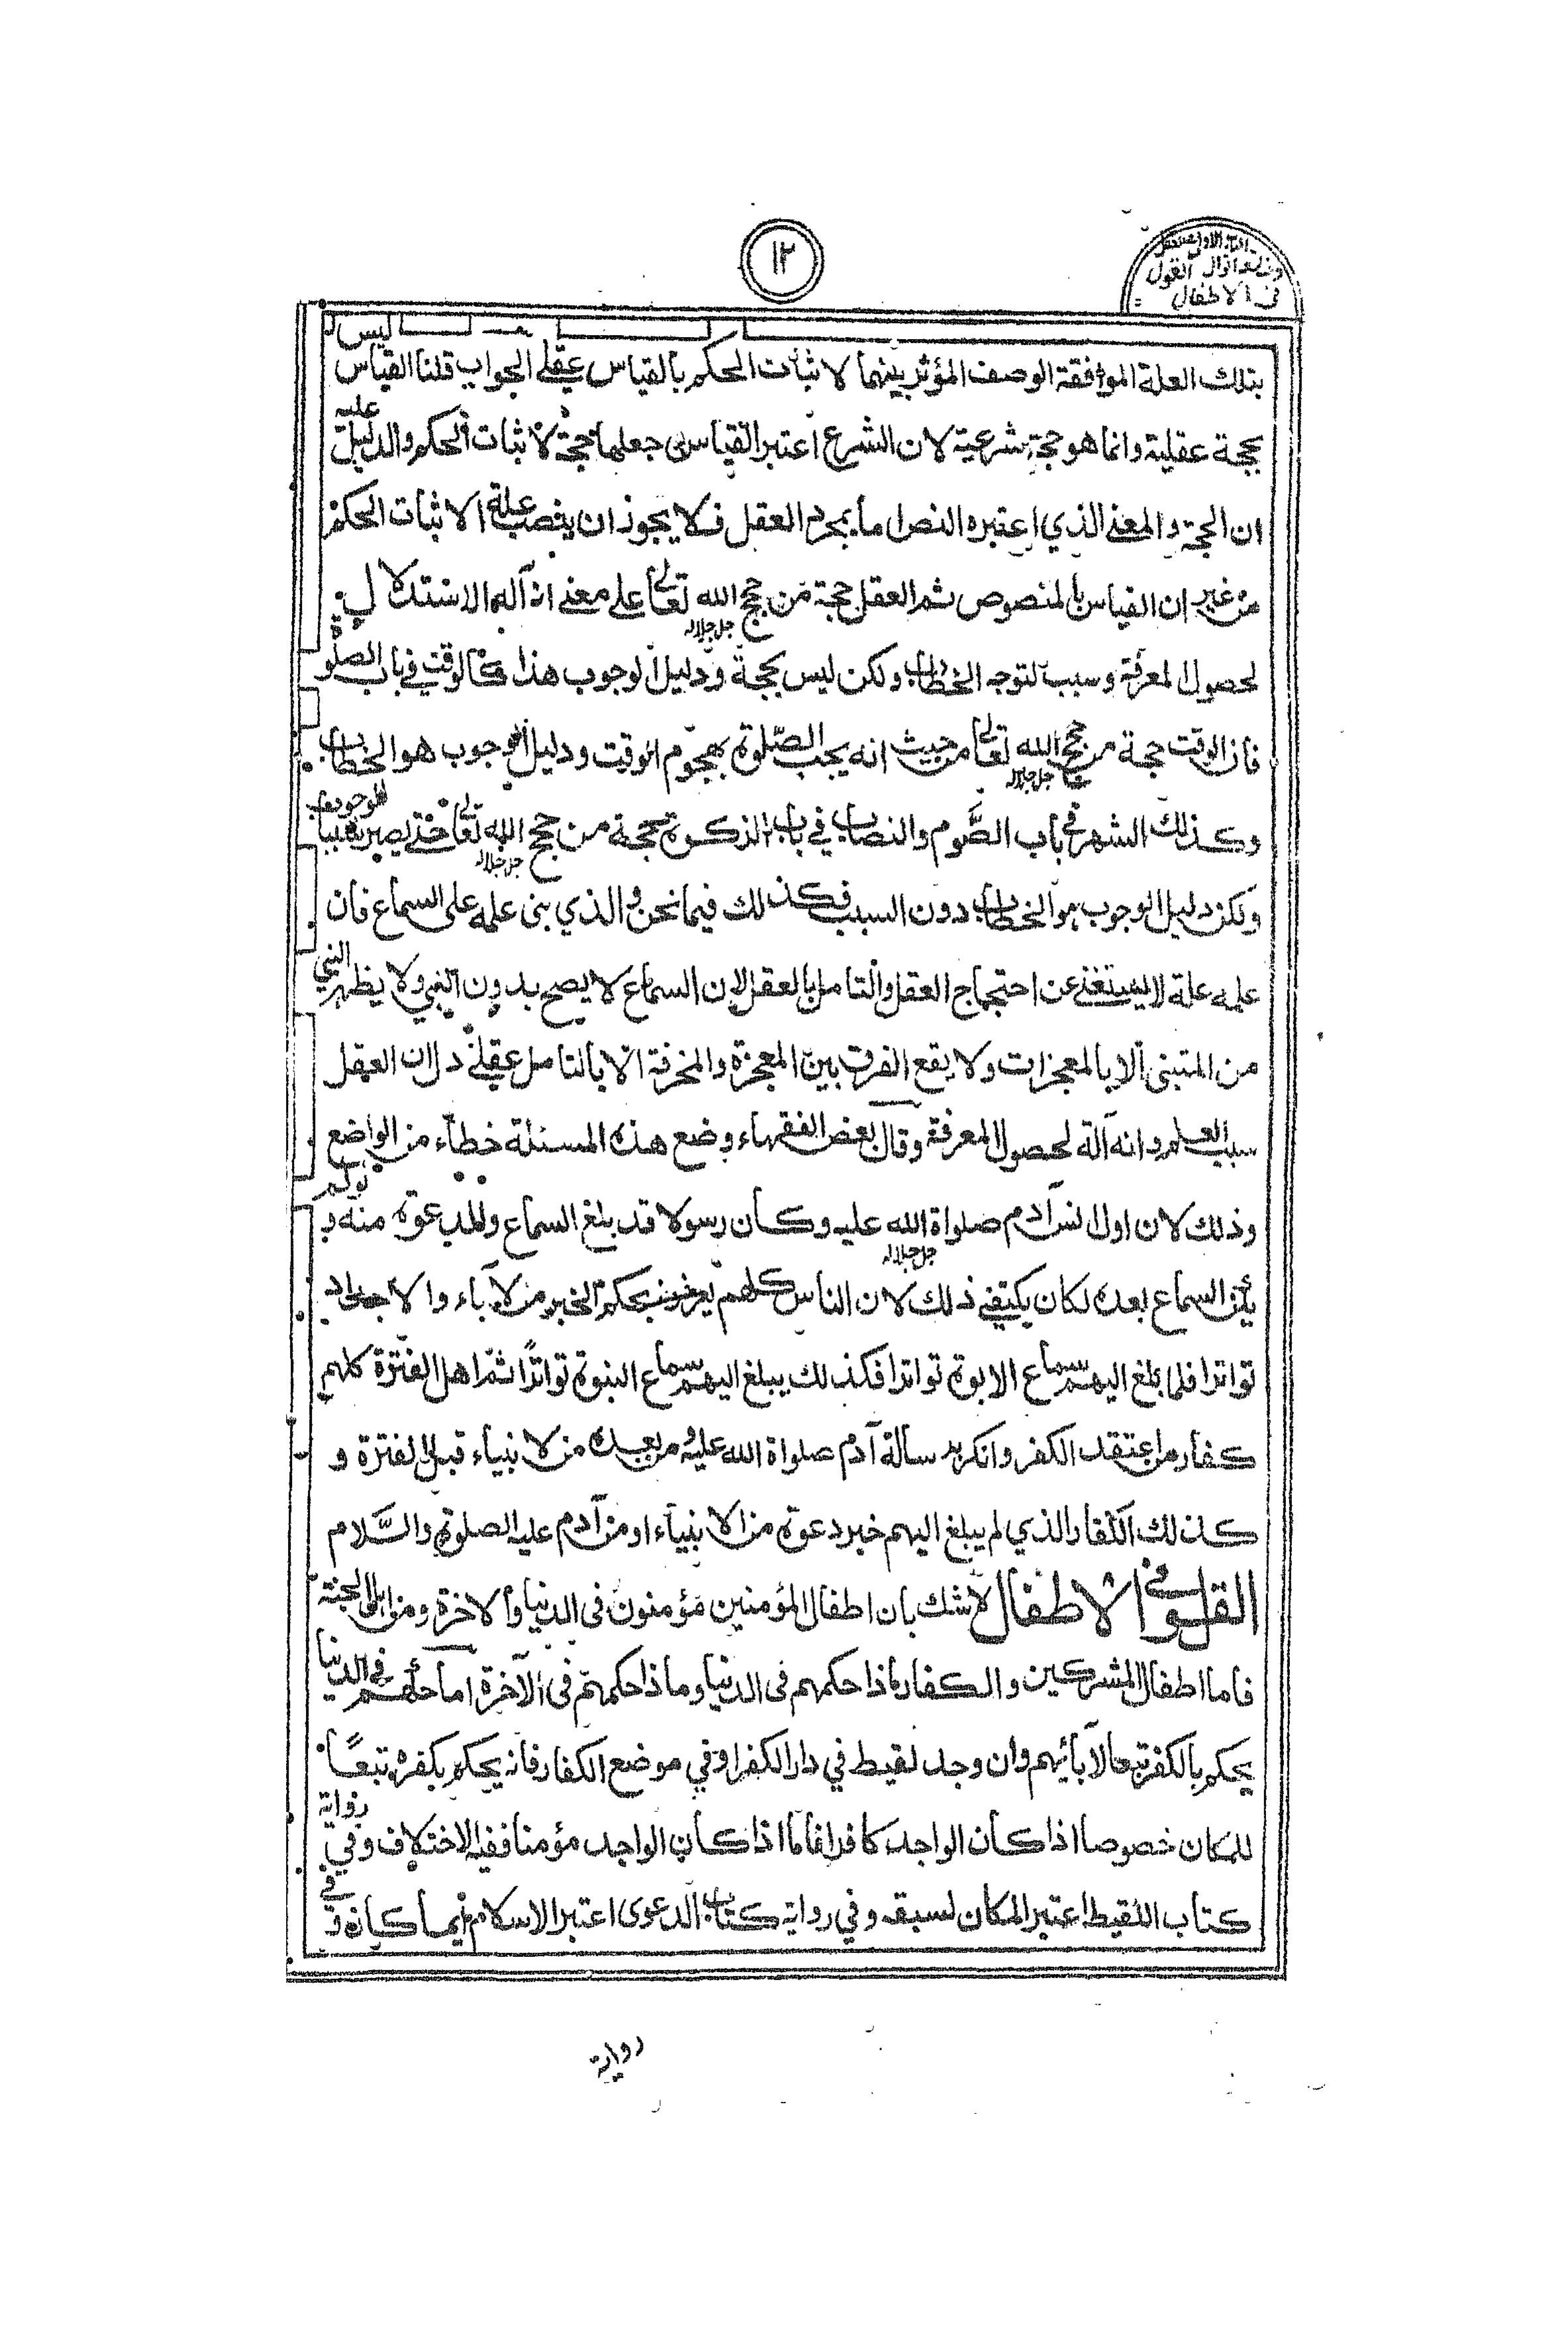 ١٢
القول
فى الاطفال
بتلك العلة الموافقة الوصف المؤثر بينهما لاثبات الحكم بالقياس عقلى الجواب قلنا القياس ليس
بحجة عقلية وانما هو حجة شرعية لان الشرع اعتبر القياس جعلها حجة لاثبات الحكم والدليل عليه
ان الحجة والمعنى الذي اعتبره النص اما بمجرد العقل فلا يجوز ان ينصب علة الاثبات الحكم
من غير ان القياس بالمنصوص ثم العقل حجة من حجج الله تعالى جل جلاله على معنى انه آلة الاستدلال
لحصول المعرفة وسبب لتوجه الخطاب ولكن ليس بحجة ودليل الوجوب هذا كالوقت في باب الصلوة
فان الوقت حجة من حجج الله تعالى جل جلاله من حيث انه يجب الصلوة بهجوم الوقت ودليل الوجوب هو الخطاب
وكذلك الشهر في باب الصوم والنصاب في باب الزكوة حجة من حجج الله تعالى جل جلاله حتى يصير سببا للوجوب
ولكن دليل الوجوب هو الخطاب دون السبب فكذلك فيما نحن والذي بنى علمه على السماع فان
علمه علة لا يستغنى عن احتجاج العقل والتامل بالعقل لان السماع لا يصح بدون النبي ولا يظهر النبي
من المتبنى الا بالمعجزات ولا يقع الفرق بين المعجزة والمخرفة الا بالتامل عقلى دل ان العقل
سبب العلم وانه آلة لحصول المعرفة وقال بعض الفقهاء وضع هذه المسئلة خطأ من الواضع
وذلك لان اول انس آدم صلواة الله عليه وكان رسولا قد بلغ السماع والدعوة منه ولو لم
يكن السماع بعده لكان يكتفى ذلك لان الناس كلهم يعرفون بحكم الخبر من الآباء والاجداد
تواترا فلما بلغ اليهم سماع الابوة تواترا فكذلك يبلغ اليهم سماع النبوة تواترًا ثم اهل الفترة كلهم
كفار من اعتقد الكفر وانكر رسالة آدم صلواة الله عليه ومن بعده من الانبياء قبل الفترة و
كذلك الكفار الذي لم يبلغ اليهم خبر دعوة من الانبياء او من آدم عليه الصلوة والسَّلام
القول فى الاطفال لا شك بان اطفال المؤمنين مؤمنون فى الدنيا والاخرة ومن اهل الجنة
فاما اطفال المشركين والكفار ماذا حكمهم فى الدنيا وماذا حكمهم فى الآخرة اما حكمهم فى الدنيا
يحكم بالكفر تبعا لآبائهم وان وجد لقيط في دار الكفر او في موضع الكفار فانه يحكم بكفره تبعًا
للمكان خصوصا اذا كان الواجد كافرا فاما اذا كان الواجد مؤمنا ففيه الاختلاف وفي رواية
كتاب اللقيط اعتبر المكان لسبقه وفي رواية كتاب الدعوى اعتبر الاسلام ايهما كان وفي
رواية